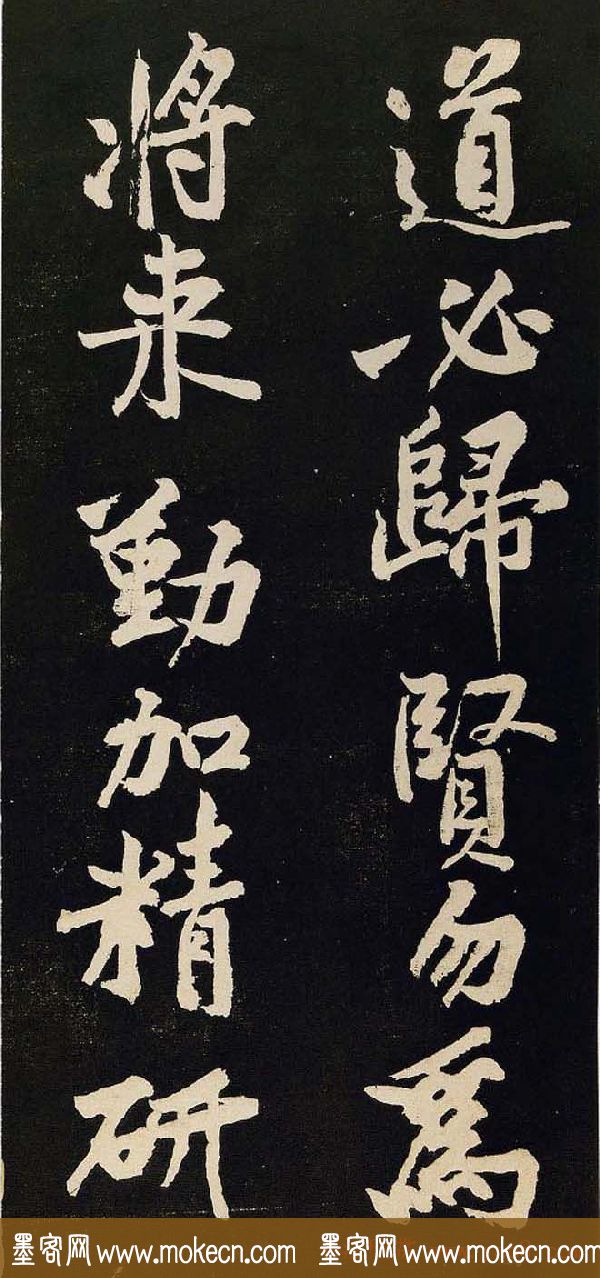 道必歸賢勿爲
将来勤加精研
墨客网 www.mokecn.com 墨客网 www.mokecn.com